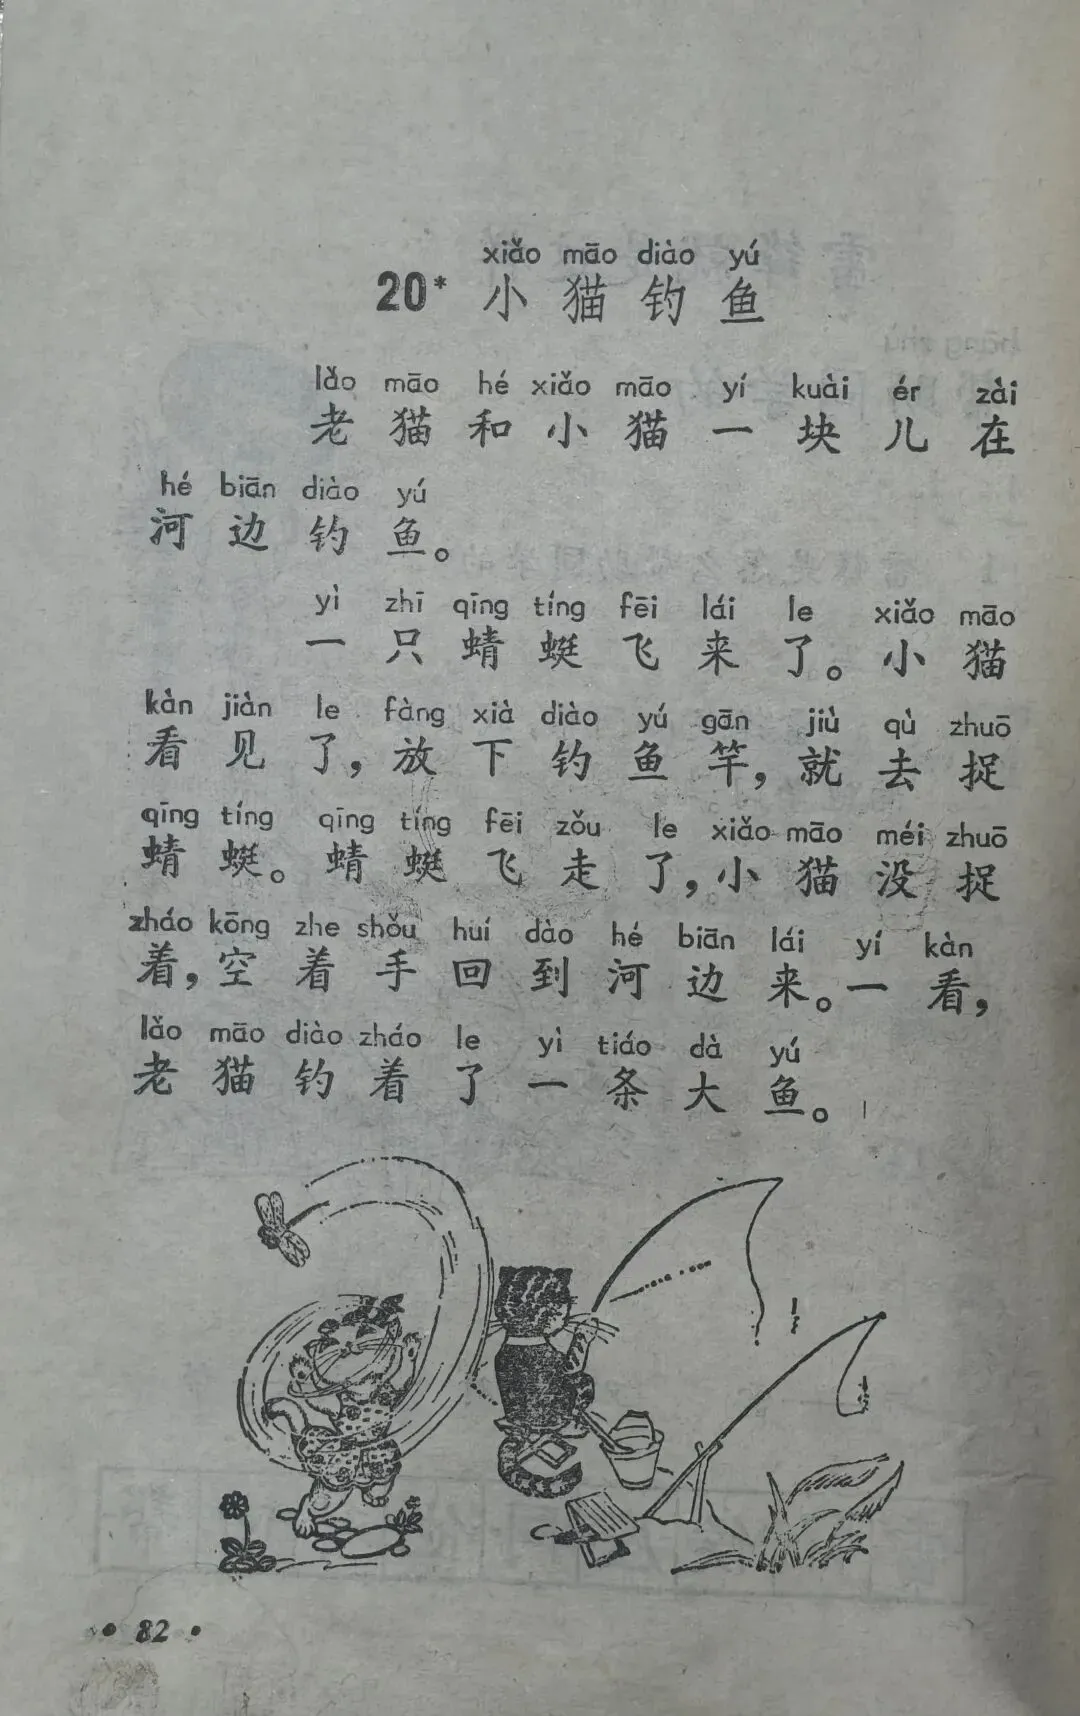 xiǎo māo diào yú
20* 小猫钓鱼
lǎo māo hé xiǎo māo yí kuài ér zài
老猫和小猫一块儿在
hé biān diào yú
河边钓鱼。
yì zhī qīng tíng fēi lái le xiǎo māo
一只蜻蜓飞来了。小猫
kàn jiàn le fàng xià diào yú gān jiù qù zhuō
看见了，放下钓鱼竿，就去捉
qīng tíng qīng tíng fēi zǒu le xiǎo māo méi zhuō
蜻蜓。蜻蜓飞走了，小猫没捉
zháo kōng zhe shǒu huí dào hé biān lái yí kàn
着，空着手回到河边来。一看，
lǎo māo diào zháo le yì tiáo dà yú
老猫钓着了一条大鱼。
• 82 •